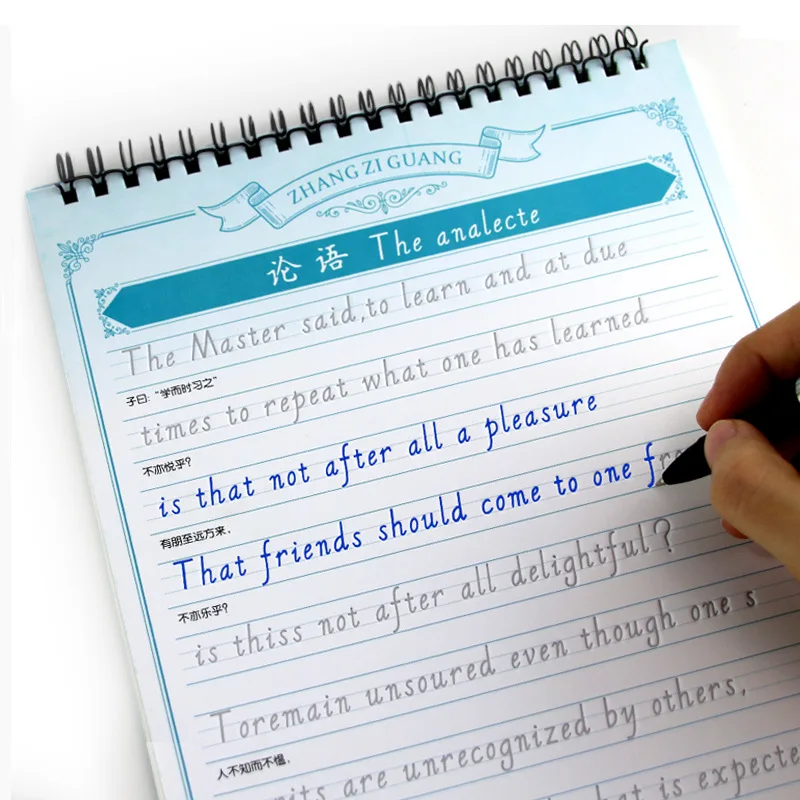 ZHANG ZI GUANG
论语 The analecte
The Master said,to learn and at due
子曰：“学而时习之”
times to repeat what one has learned
不亦悦乎？
is that not after all a pleasure
有朋至远方来，
That friends should come to one f
不亦乐乎？
is thiss not after all delightful?
Toremain unsoured even though one s
人不知而不愠，
its are unrecognized by others,
t is expecte